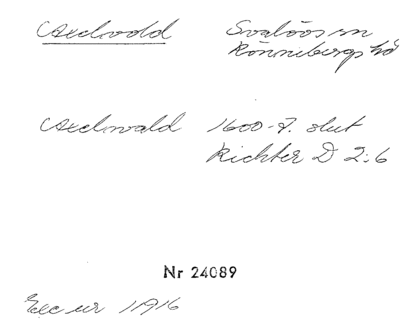 Axelvold Svalövs sn
Rönnebergs hd
Axelwald 1600-t. slut
Richter D 2:6
Nr 24089
Exc ur 1916